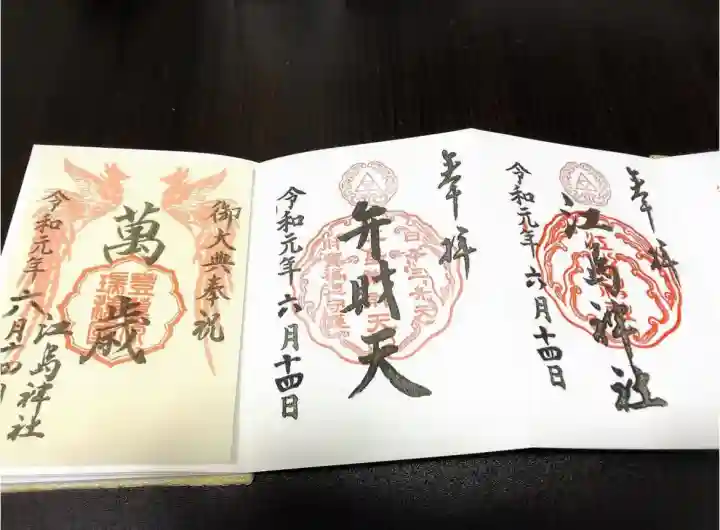 御大典奉祝
萬歳
令和元年六月十四日
江島神社
奉拝
弁財天
令和元年六月十四日
奉拝
江島神社
令和元年六月十四日